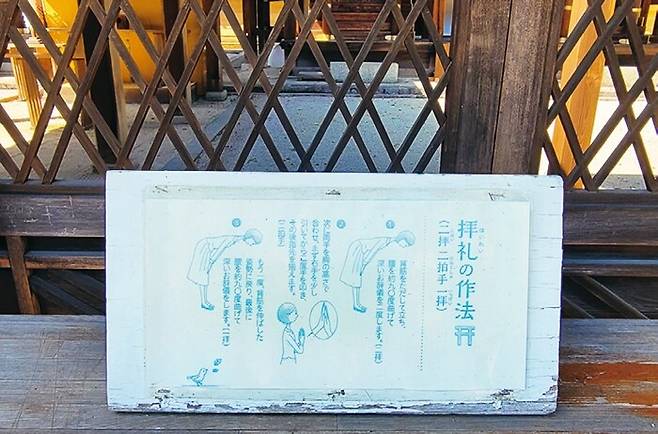 拝礼の作法
(二拝 二拍手 一拝)
①
背筋をただして立ち、
腰を約九〇度曲げて
深いお辞儀を二度します。(二拝)
②
次に両手を胸の高さで
合わせ、まず右手を少し
引いてから二度手をたたき、
その後指先を揃えます。
(二拍手)
③
もう一度、背筋を伸ばした
姿勢に戻り、最後に
腰を約九〇度曲げて
深いお辞儀をします。(一拝)